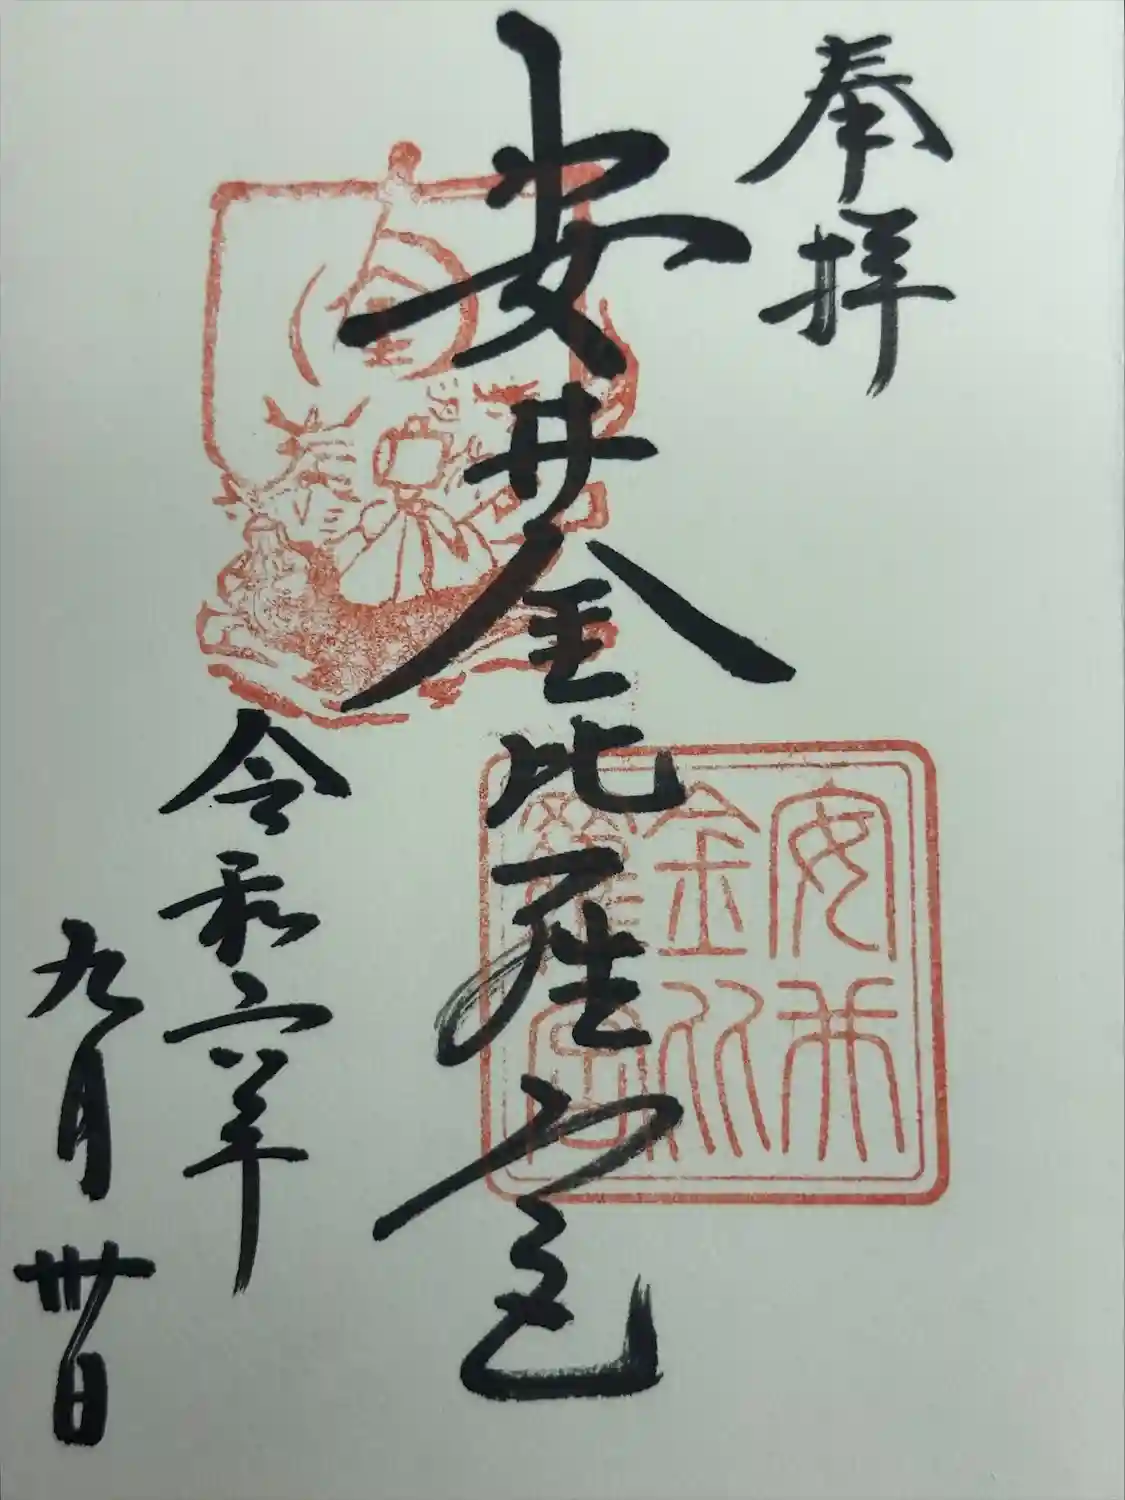 奉拝
安井金比羅宮
安井
金比
羅宮
金
令和六年
九月卅日